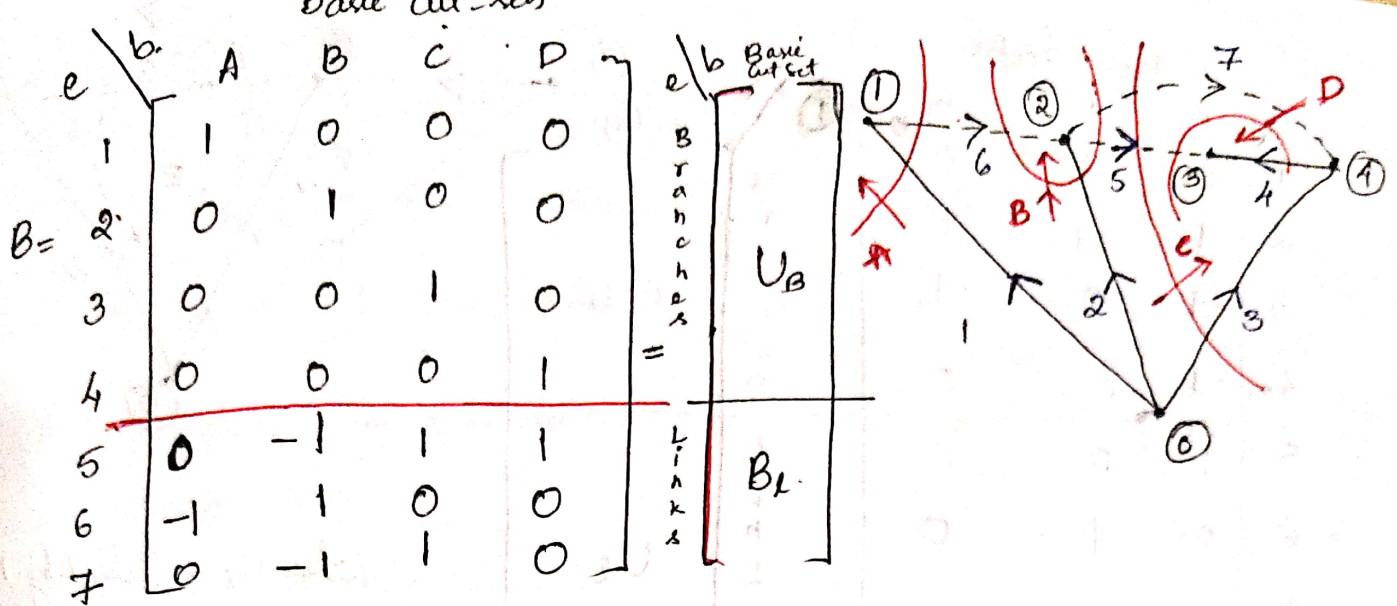 Basic cut-sets
e b. A B C D
1 1 0 0 0
2 0 1 0 0
B= 3 0 0 1 0
4 0 0 0 1
5 0 -1 1 1
6 -1 1 0 0
7 0 -1 1 0
=
e b Basic cut set
Branches
U_B
Links
B_l.
① ② ③ ④ ⓪
1 2 3 4 5 6 7
A B C D